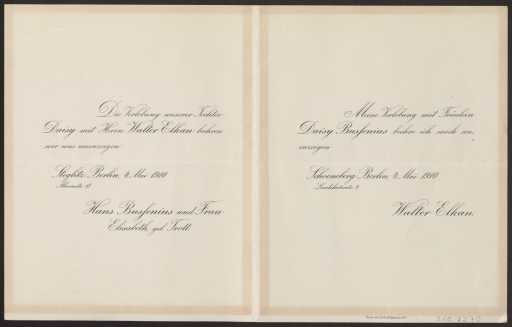 Die Verlobung unserer Tochter
Daisy mit Herrn Walter Elkan beehren
wir uns anzuzeigen
Steglitz-Berlin, Mai 1910
Hans Busfenius und Frau
Elisabeth, geb. Troll
Meine Verlobung mit Fräulein
Daisy Busfenius beehre ich mich an-
zuzeigen
Schoeneberg-Berlin, Mai 1910
Walter Elkan.